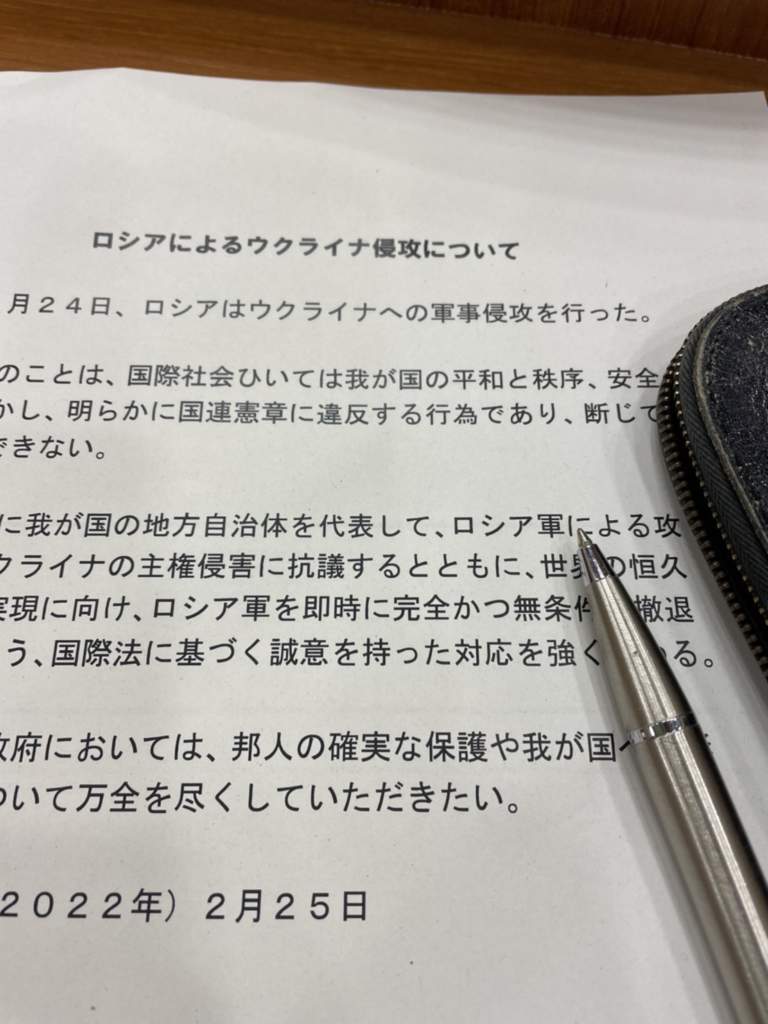 ロシアによるウクライナ侵攻について
月２４日、ロシアはウクライナへの軍事侵攻を行った。
のことは、国際社会ひいては我が国の平和と秩序、安全
かし、明らかに国連憲章に違反する行為であり、断じて
できない。
に我が国の地方自治体を代表して、ロシア軍による攻
クライナの主権侵害に抗議するとともに、世界の恒久
実現に向け、ロシア軍を即時に完全かつ無条件 撤退
う、国際法に基づく誠意を持った対応を強く める。
政府においては、邦人の確実な保護や我が国
ついて万全を尽くしていただきたい。
２０２２年）２月２５日